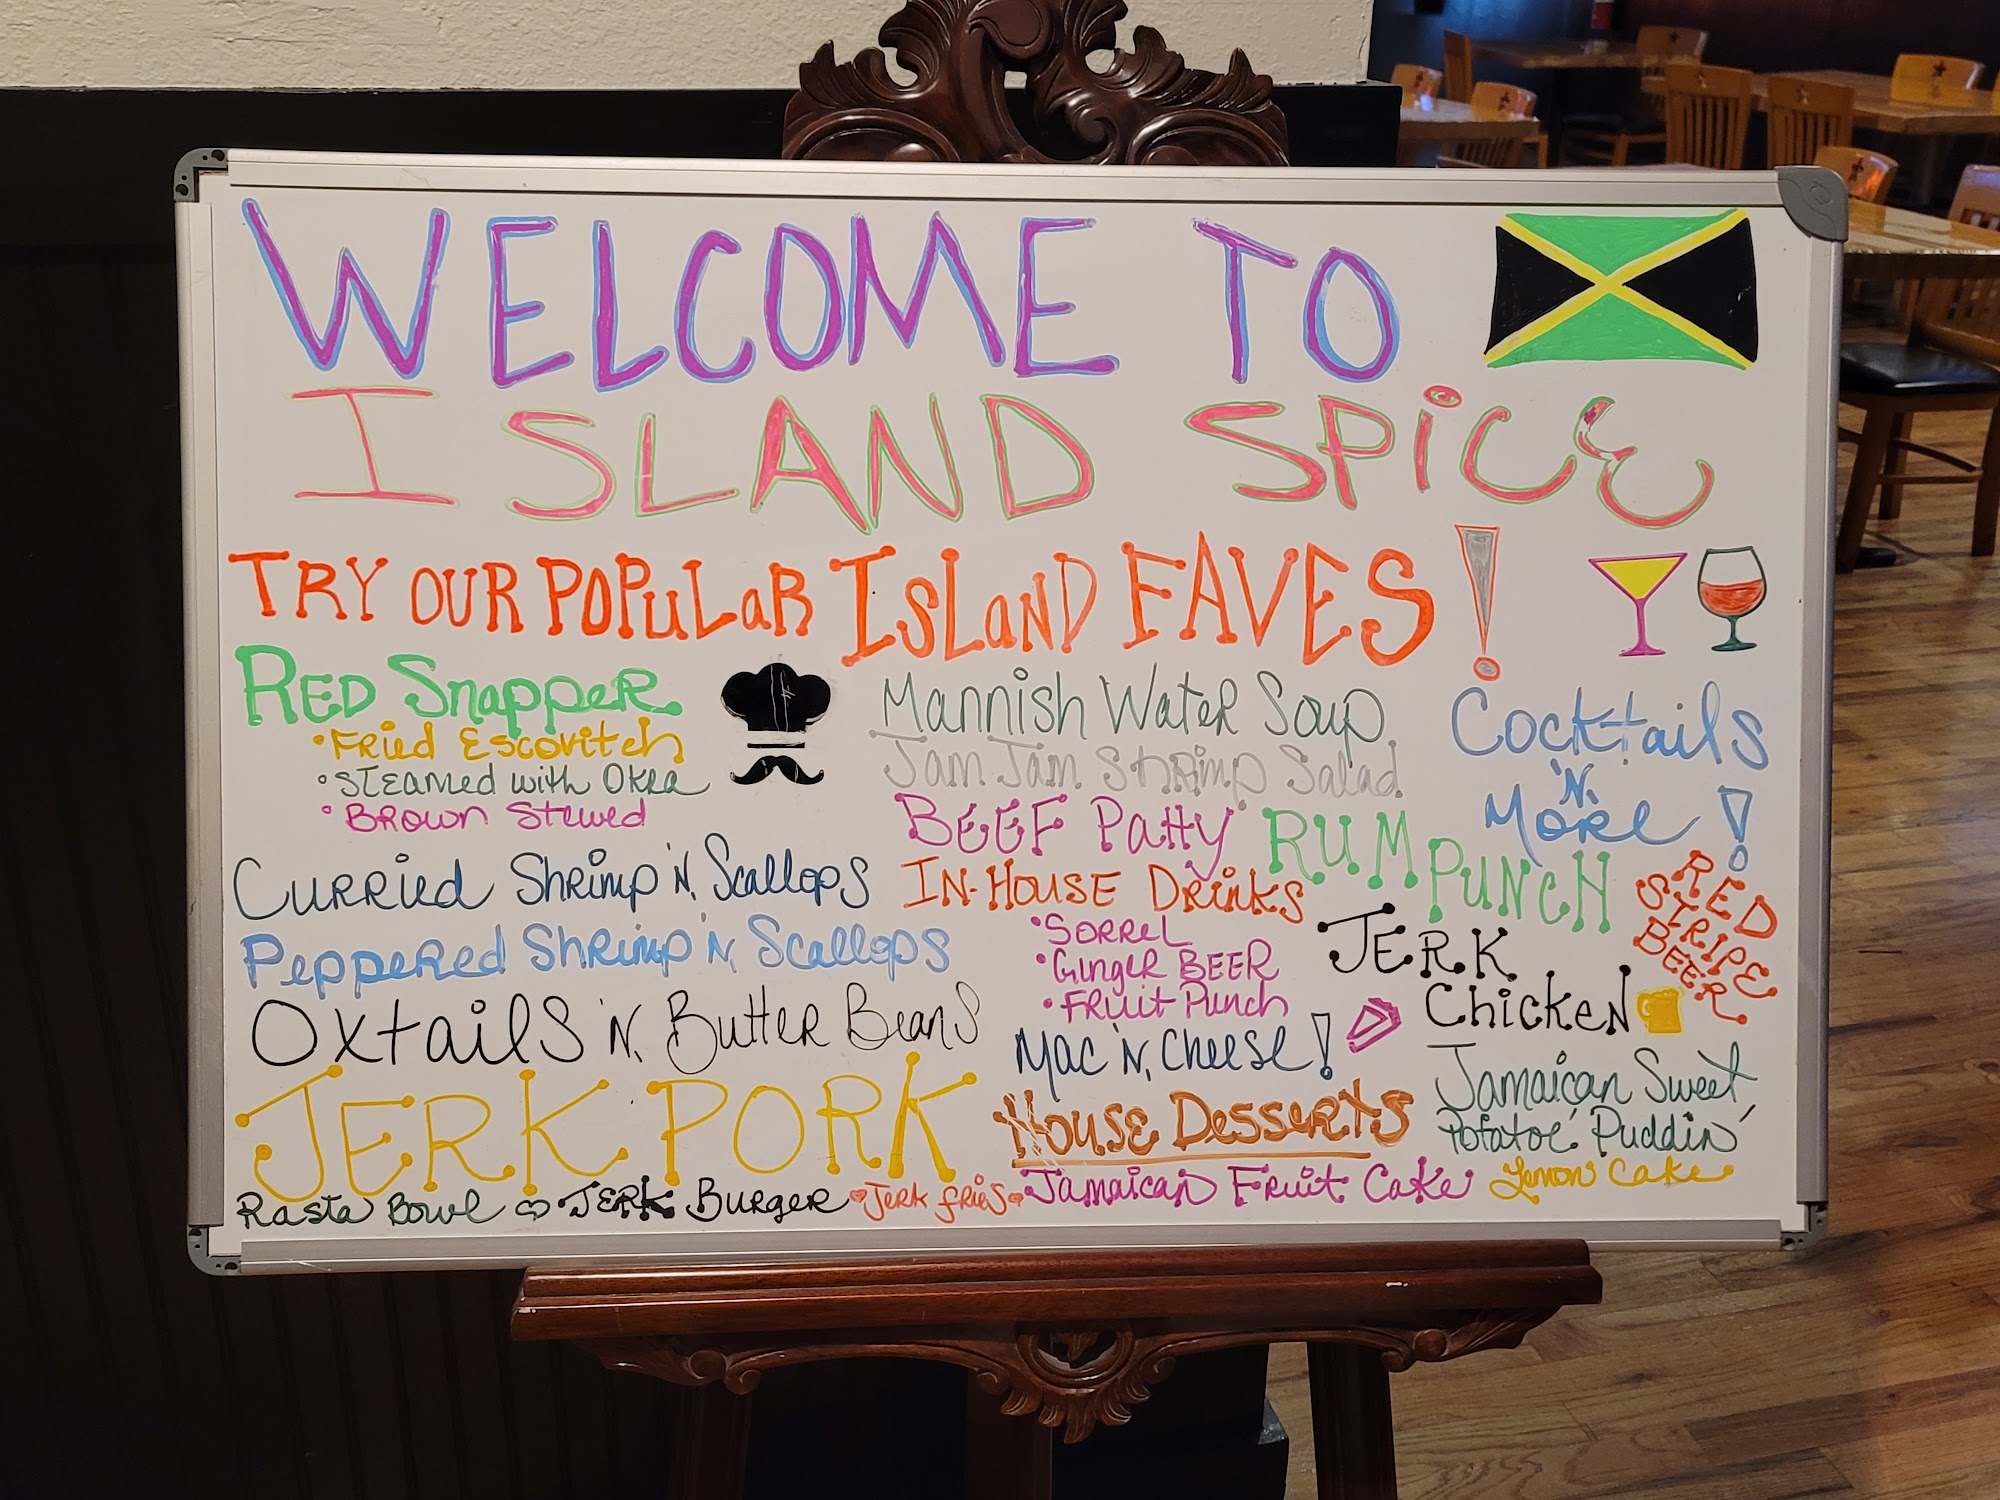 WELCOME TO
ISLAND SPiCE
TRY OUR POPuLaR ISLanD FAVES!
RED SnappeR
• FRied Escovitch
• STEAMED with OkRA
• BROWN Stewed
CuRRied ShRimp 'N, Scallops
PeppeRed ShRimp 'N, Scallops
Oxtails 'N, ButteR Beans
JERK PORK
Rasta Bowl
• JERK BuRgeR
JeRk fRies
Mannish WateR Soup
Jam Jam ShRimp Salad
BEEF Patty
IN-HOUSE DRinKs
• SoRReL
• GingeR BEER
• FRuit Punch
Mac 'N, Cheese!
House DesseRts
Jamaican FRuit Cake
Lemon Cake
Cocktails
'N,
MoRe!
RUM PUNCH
RED
STRIPE
BEER
JERK
ChickeN
Jamaican Sweet
Potatoe' Puddin'